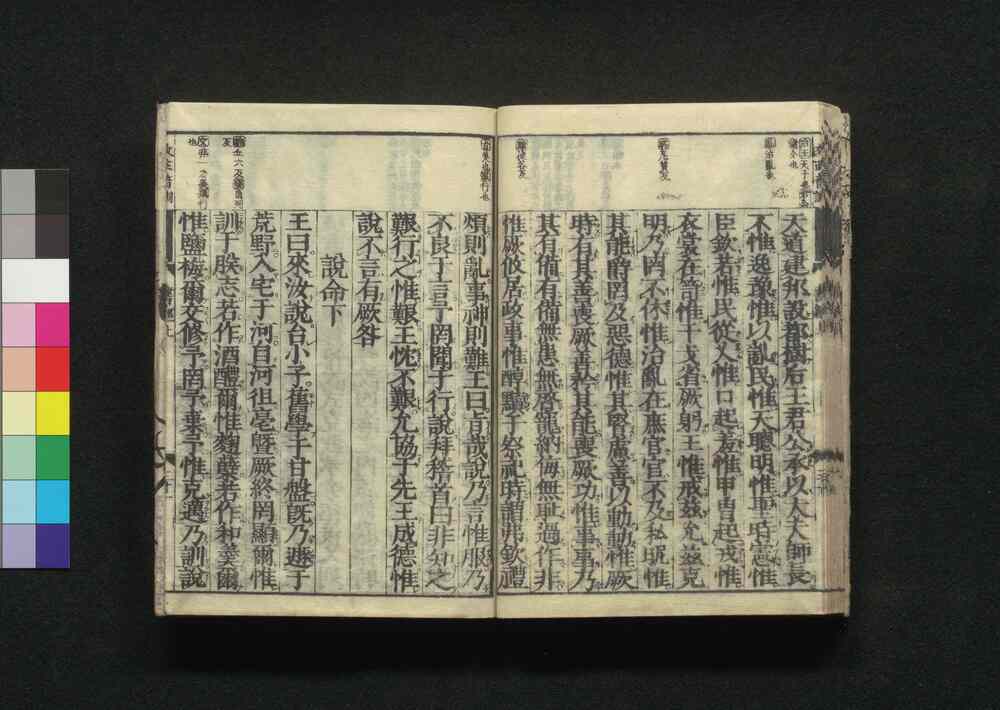 天道建邦設都樹后王君公承以大夫師長
不惟逸豫惟以亂民惟天聰明惟聖時憲惟
臣欽若惟民從乂惟口起羞惟甲冑起戎惟
衣裳在笥惟干戈省厥躬王惟戒茲允茲克
明乃罔不休惟治亂在庶官官不及私昵惟
其能爵罔及惡德惟其賢慮善以動動惟厥
時有其善喪厥善矜其能喪厥功惟事事乃
其有備有備無患無啓寵納侮無恥過作非
惟厥攸居政事惟醇黷于祭祀時謂弗欽禮
煩則亂事神則難王曰旨哉說乃言惟服乃
不良于言予罔聞于行說拜稽首曰非知之
艱行之惟艱王忱不艱允協于先王成德惟
說不言有厥咎
說命下
王曰來汝說台小子舊學于甘盤既乃遯于
荒野入宅于河自河徂亳曁厥終罔顯爾惟
訓于朕志若作酒醴爾惟麴糵若作和羹爾
惟鹽梅爾交修予罔予棄予惟克邁乃訓說